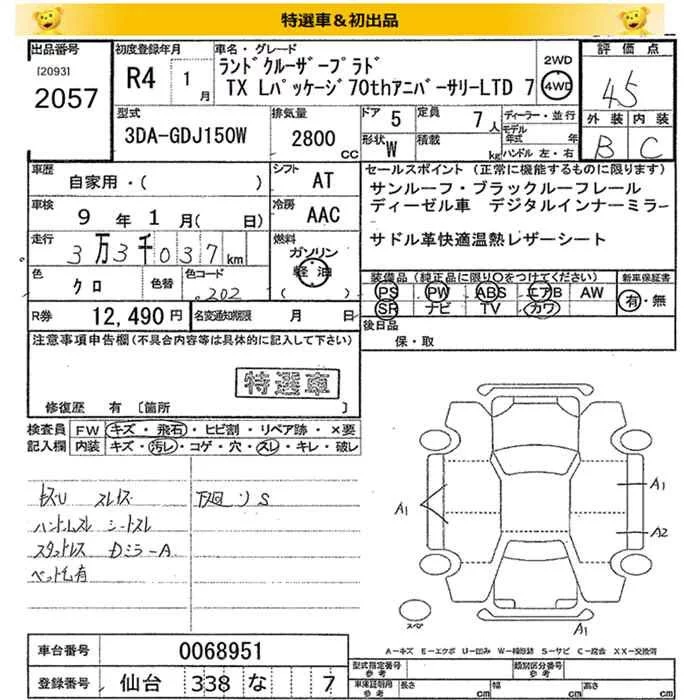 特選車＆初出品
出品番号 初度登録年月 車名・グレード 2WD 評価点
[2093]
2057
R4 1月
ランドクルーザープラド
TX Lパッケージ70thアニバーサリーLTD 7
4WD
4.5
外装 内装
B C
型式 排気量 ドア 5 定員 7人 ディーラー・並行
3DA-GDJ150W 2800cc
モデル年式 年
形状 W 積載 kg ハンドル 左・右
車歴 シフト セールスポイント (正常に機能するものに限ります)
自家用・( ) AT
サンルーフ・ブラックルーフレール
ディーゼル車 デジタルインナーミラー
サドル革快適温熱レザーシート
車検 9年1月(日) 冷房 AAC
走行 3万3千037km 燃料
ガソリン
軽油
( )
色 色替 色コード
クロ 202
装備品 (純正品に限り〇をつけてください) 新車保証書
PS PW ABS エアB AW 有・無
SR ナビ TV カワ
R券 12,490円 名変通知期限 月 日
後日品
保・取
注意事項申告欄(不具合内容等は具体的に記入して下さい)
特選車
修復歴 有 [箇所 ]
検査員 FW キズ・飛石・ヒビ割・リペア跡・×要
記入欄 内装 キズ・汚レ・コゲ・穴・スレ・キレ・破レ
下廻りS
ハンドルスレ シートスレ
スタッドレス DミラーA
ペット毛有
A1
A1
A2
A1
スペア
A-キズ E-エクボ U-凹み W-補修跡 S-サビ C-腐食 XX-交換済
車台番号 0068951
登録番号 仙台 338 な 7
型式指定番号 参考 類別区分番号 参考
車庫証明用 参考 長さ cm 幅 cm 高さ cm